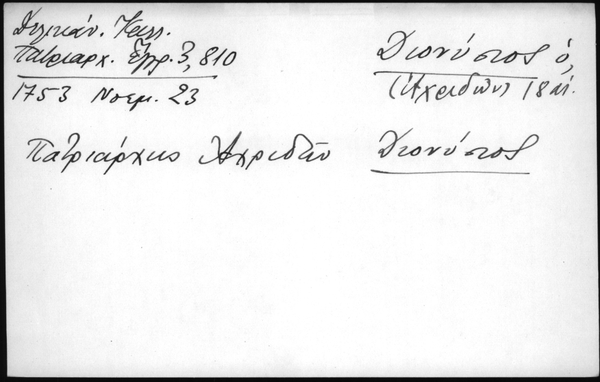 Δελικάν. Καλλ.
Πατριαρχ. Ἔγγρ. 3, 810
1753 Νοεμ. 23
Διονύσιος ὁ,
(Ἀχριδῶν) 18 αἰ.
Πατριάρχης Ἀχριδῶν Διονύσιος